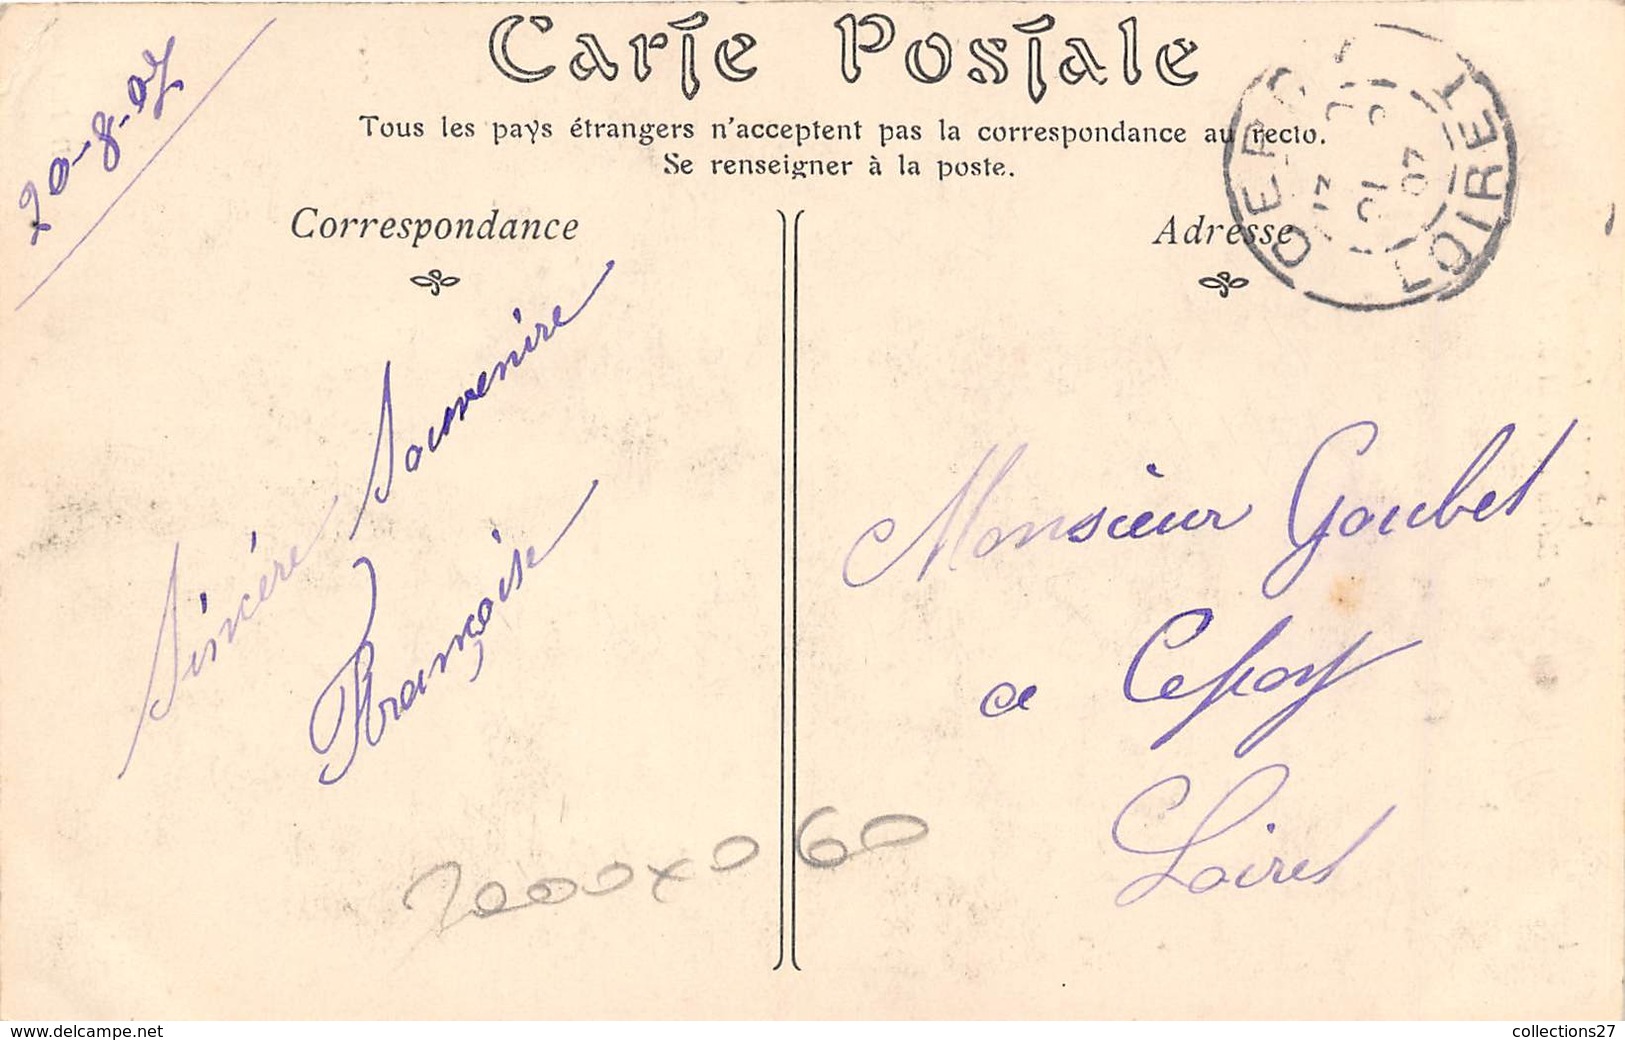 Carte Postale
Tous les pays étrangers n'acceptent pas la correspondance au recto.
Se renseigner à la poste.
20-8-07
Correspondance
Adresse
CEPOY
LOIRET
07
Sincère Souvenire
Françoise
Monsieur Goubet
a Cepoy
Loiret
www.delcampe.net
collections27